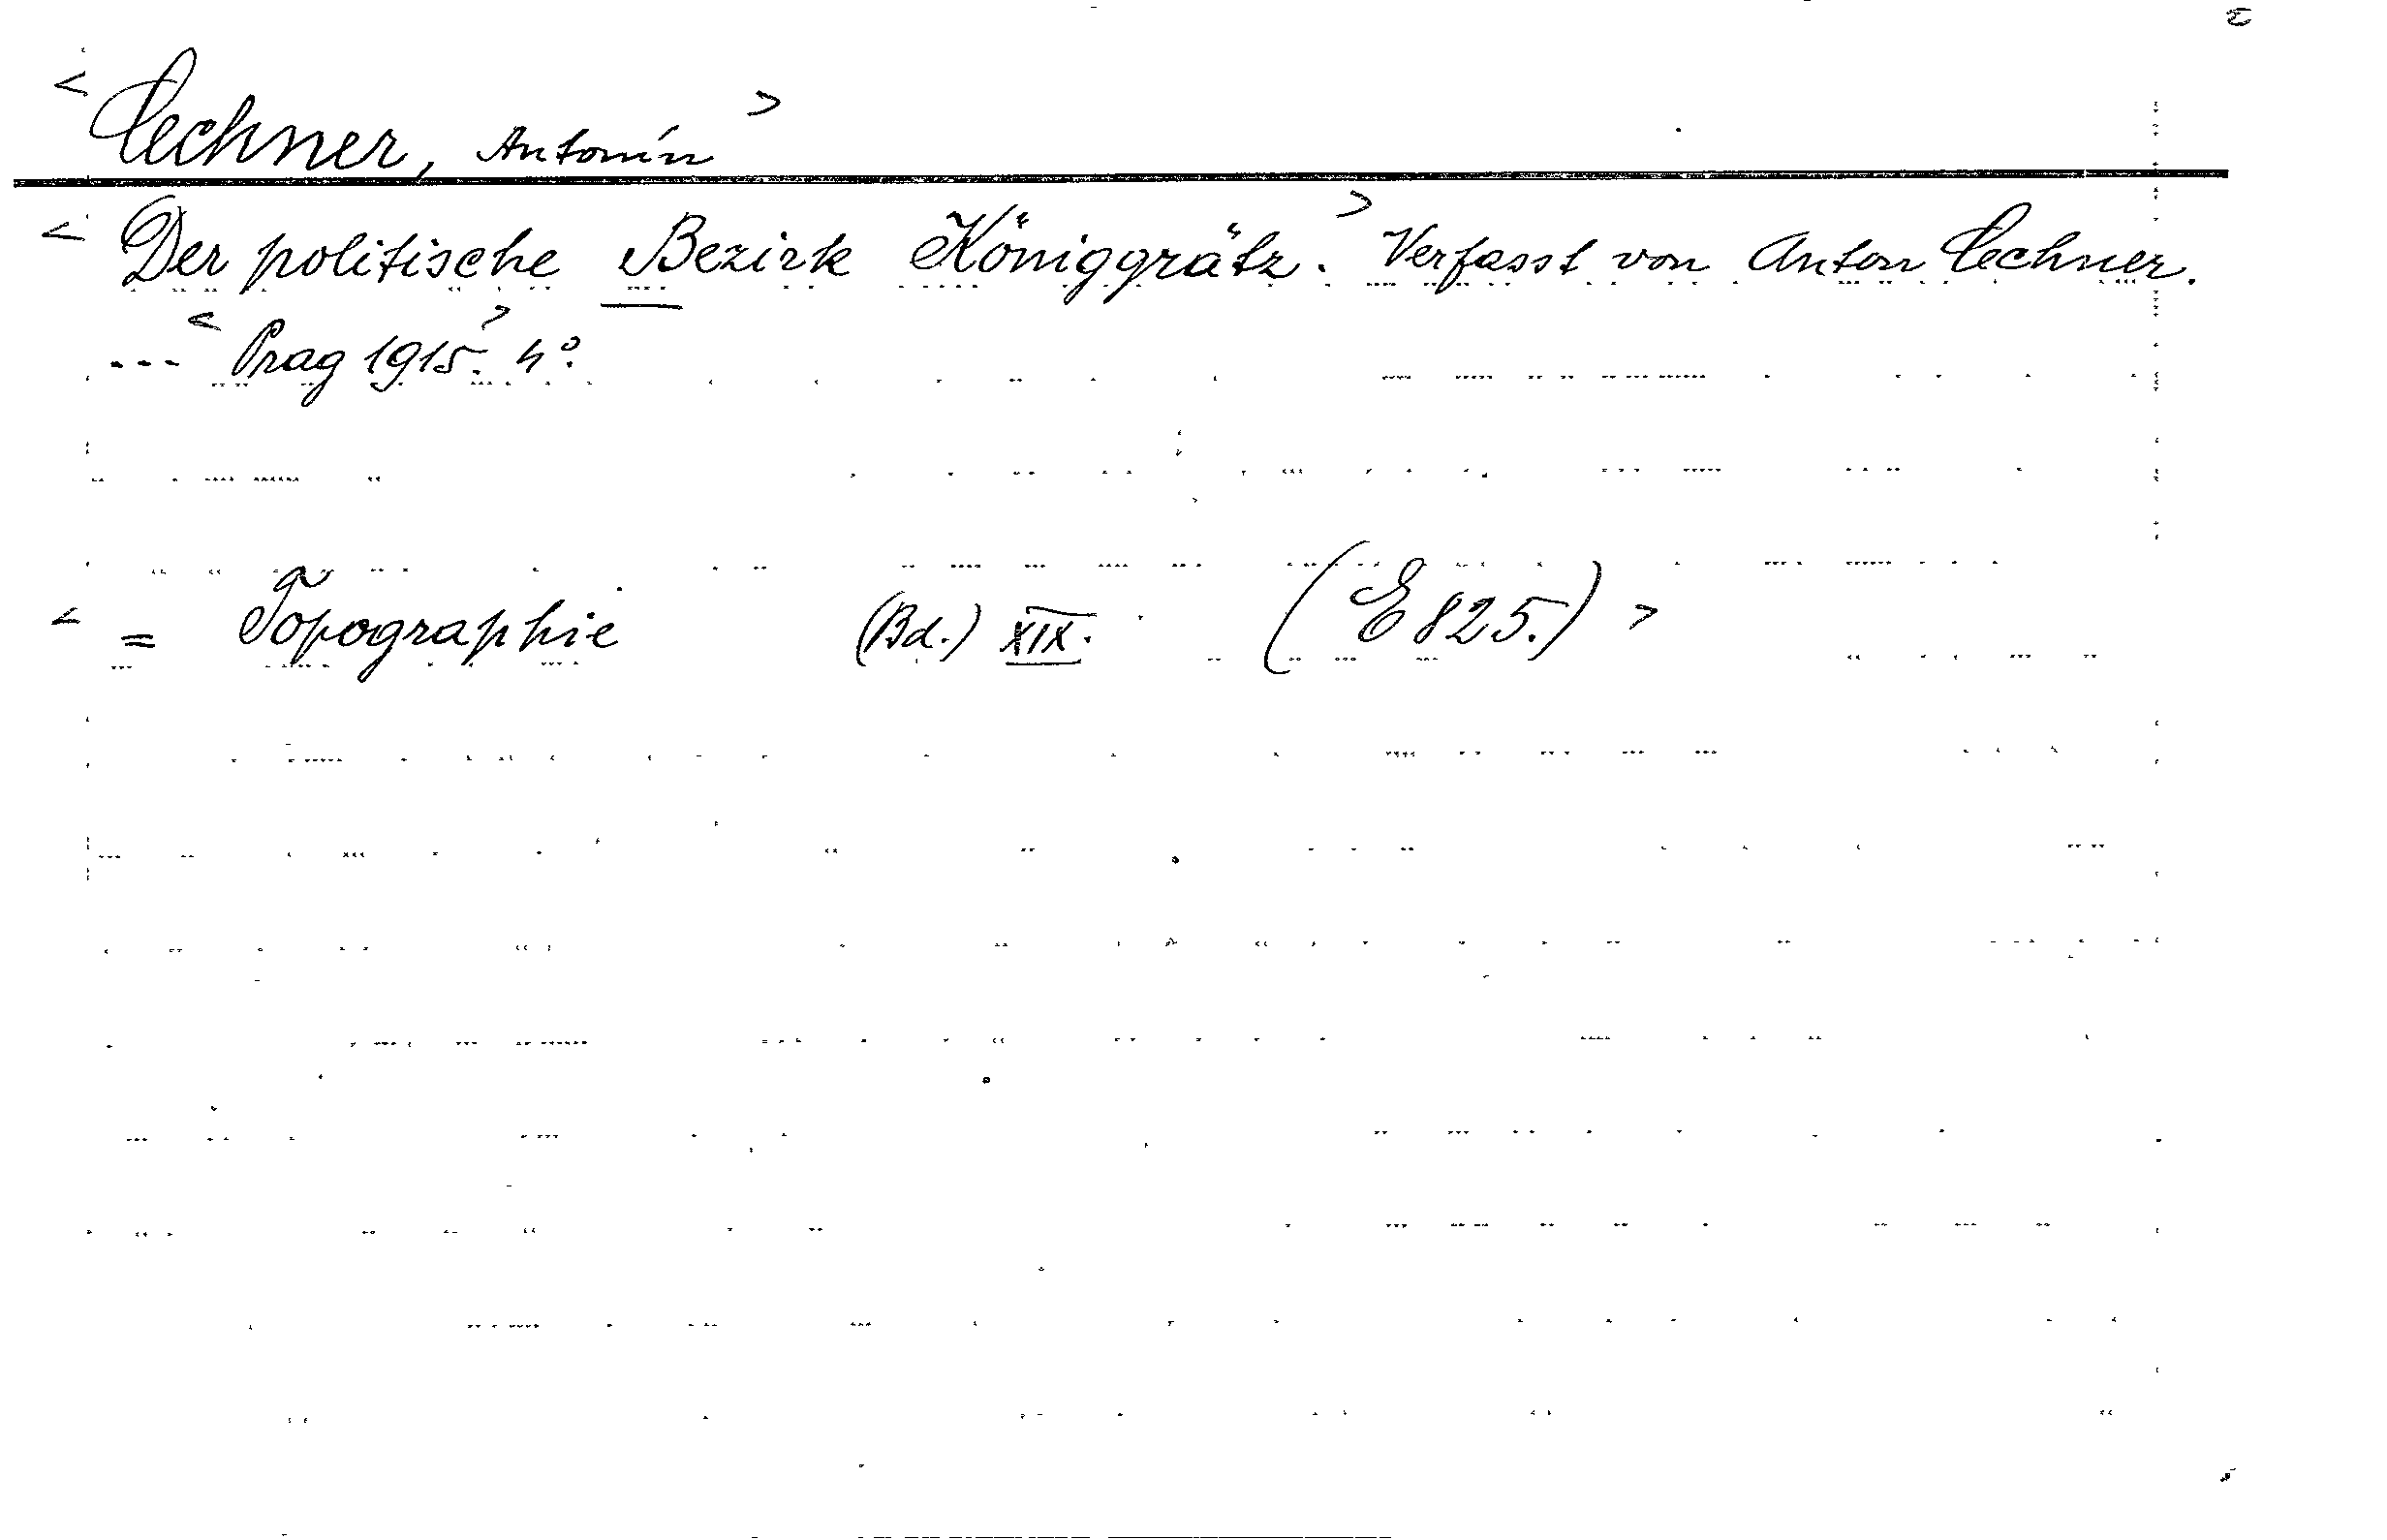 < Cechner, Antonín >
< Der politische Bezirk Königgrätz. > Verfasst von Anton Cechner.
--- < Prag 1915. > 4°.
< = Topographie (Bd.) XIX. (E 825.) >